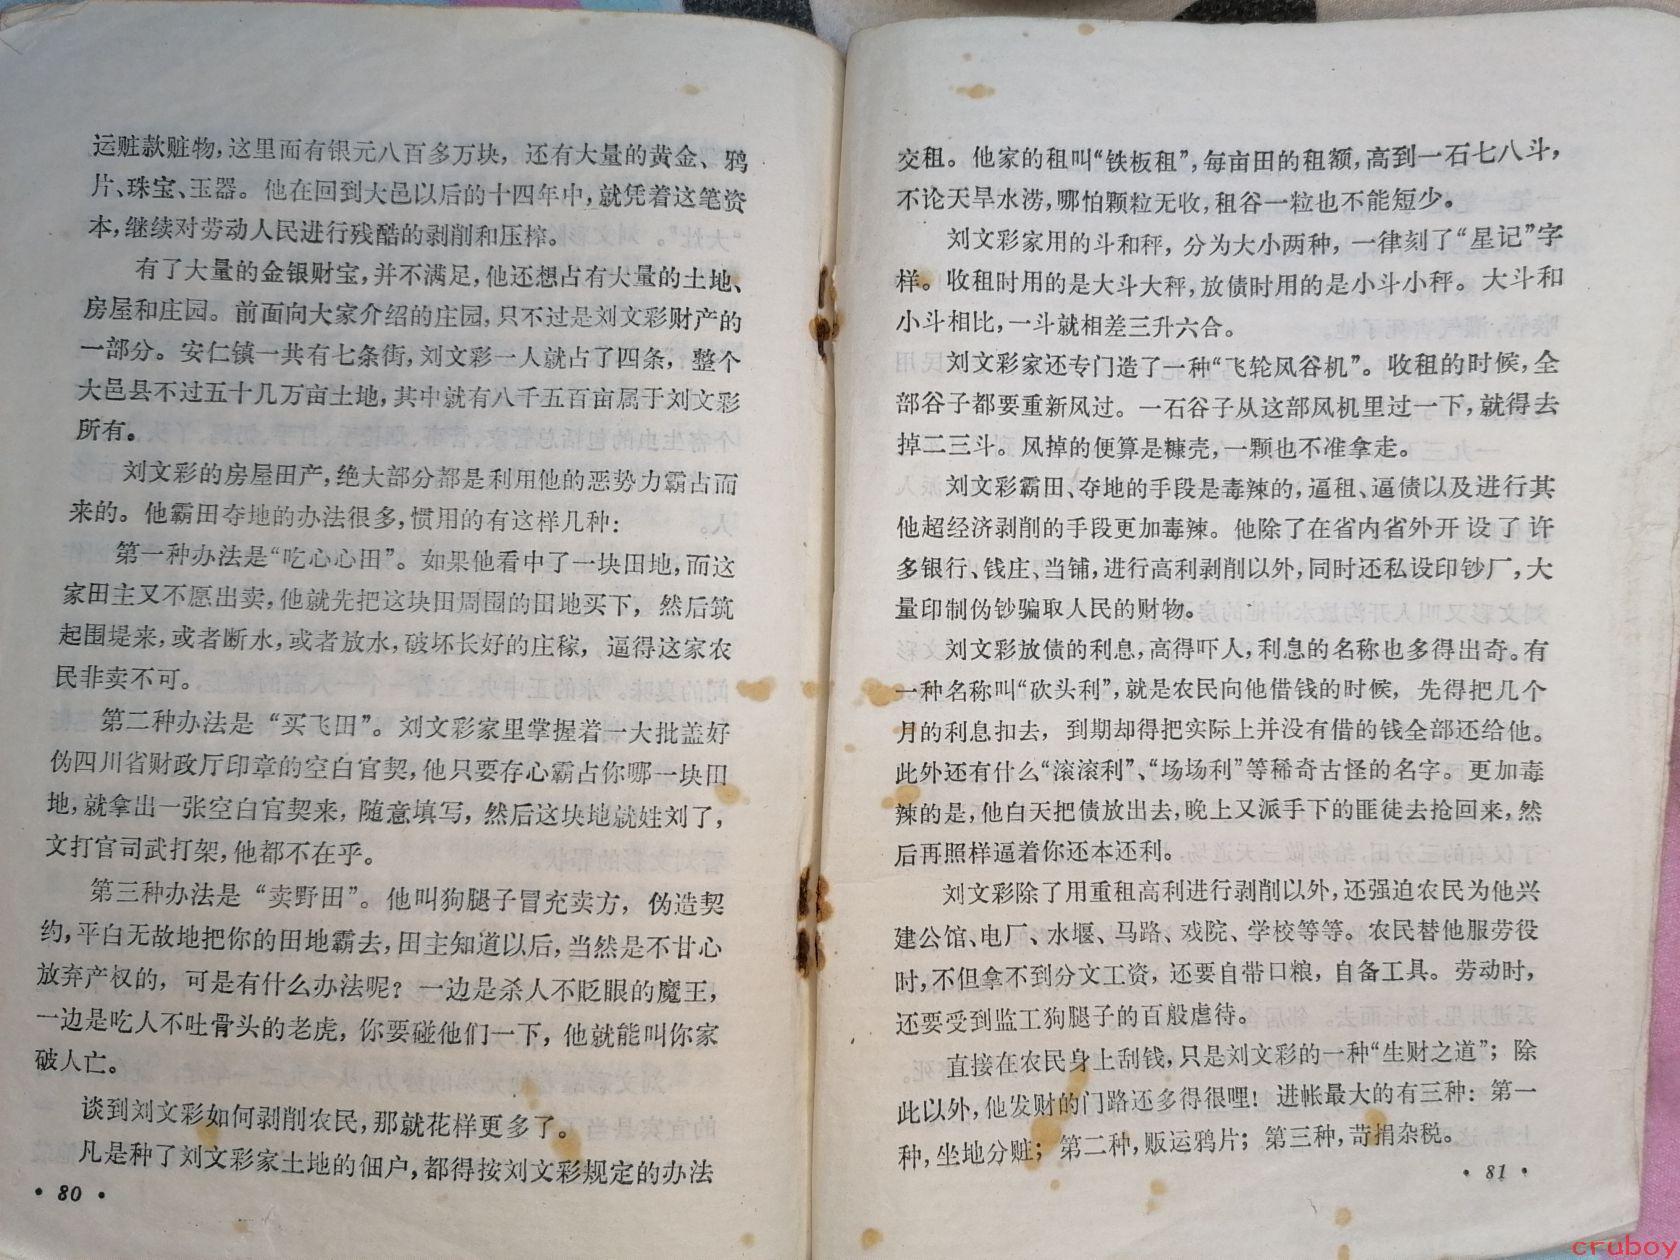 运赃款赃物，这里面有银元八百多万块，还有大量的黄金、鸦
片、珠宝、玉器。他在回到大邑以后的十四年中，就凭着这笔资
本，继续对劳动人民进行残酷的剥削和压榨。
有了大量的金银财宝，并不满足，他还想占有大量的土地、
房屋和庄园。前面向大家介绍的庄园，只不过是刘文彩财产的
一部分。安仁镇一共有七条街，刘文彩一人就占了四条，整个
大邑县不过五十几万亩土地，其中就有八千五百亩属于刘文彩
所有。
刘文彩的房屋田产，绝大部分都是利用他的恶势力霸占而
来的。他霸田夺地的办法很多，惯用的有这样几种：
第一种办法是“吃心心田”。如果他看中了一块田地，而这
家田主又不愿出卖，他就先把这块田周围的田地买下，然后筑
起围堤来，或者断水，或者放水，破坏长好的庄稼，逼得这家农
民非卖不可。
第二种办法是“买飞田”。刘文彩家里掌握着一大批盖好
伪四川省财政厅印章的空白官契，他只要存心霸占你哪一块田
地，就拿出一张空白官契来，随意填写，然后这块地就姓刘了，
文打官司武打架，他都不在乎。
第三种办法是“卖野田”。他叫狗腿子冒充卖方，伪造契
约，平白无故地把你的田地霸去，田主知道以后，当然是不甘心
放弃产权的，可是有什么办法呢？一边是杀人不眨眼的魔王，
一边是吃人不吐骨头的老虎，你要碰他们一下，他就能叫你家
破人亡。
谈到刘文彩如何剥削农民，那就花样更多了。
凡是种了刘文彩家土地的佃户，都得按刘文彩规定的办法
• 80 •
交租。他家的租叫“铁板租”，每亩田的租额，高到一石七八斗，
不论天旱水涝，哪怕颗粒无收，租谷一粒也不能短少。
刘文彩家用的斗和秤，分为大小两种，一律刻了“星记”字
样。收租时用的是大斗大秤，放债时用的是小斗小秤。大斗和
小斗相比，一斗就相差三升六合。
刘文彩家还专门造了一种“飞轮风谷机”。收租的时候，全
部谷子都要重新风过。一石谷子从这部风机里过一下，就得去
掉二三斗。风掉的便算是糠壳，一颗也不准拿走。
刘文彩霸田、夺地的手段是毒辣的，逼租、逼债以及进行其
他超经济剥削的手段更加毒辣。他除了在省内省外开设了许
多银行、钱庄、当铺，进行高利剥削以外，同时还私设印钞厂，大
量印制伪钞骗取人民的财物。
刘文彩放债的利息，高得吓人，利息的名称也多得出奇。有
一种名称叫“砍头利”，就是农民向他借钱的时候，先得把几个
月的利息扣去，到期却得把实际上并没有借的钱全部还给他。
此外还有什么“滚滚利”、“场场利”等稀奇古怪的名字。更加毒
辣的是，他白天把债放出去，晚上又派手下的匪徒去抢回来，然
后再照样逼着你还本还利。
刘文彩除了用重租高利进行剥削以外，还强迫农民为他兴
建公馆、电厂、水堰、马路、戏院、学校等等。农民替他服劳役
时，不但拿不到分文工资，还要自带口粮，自备工具。劳动时，
还要受到监工狗腿子的百般虐待。
直接在农民身上刮钱，只是刘文彩的一种“生财之道”；除
此以外，他发财的门路还多得很哩！进帐最大的有三种：第一
种，坐地分赃；第二种，贩运鸦片；第三种，苛捐杂税。
• 81 •
cruboy